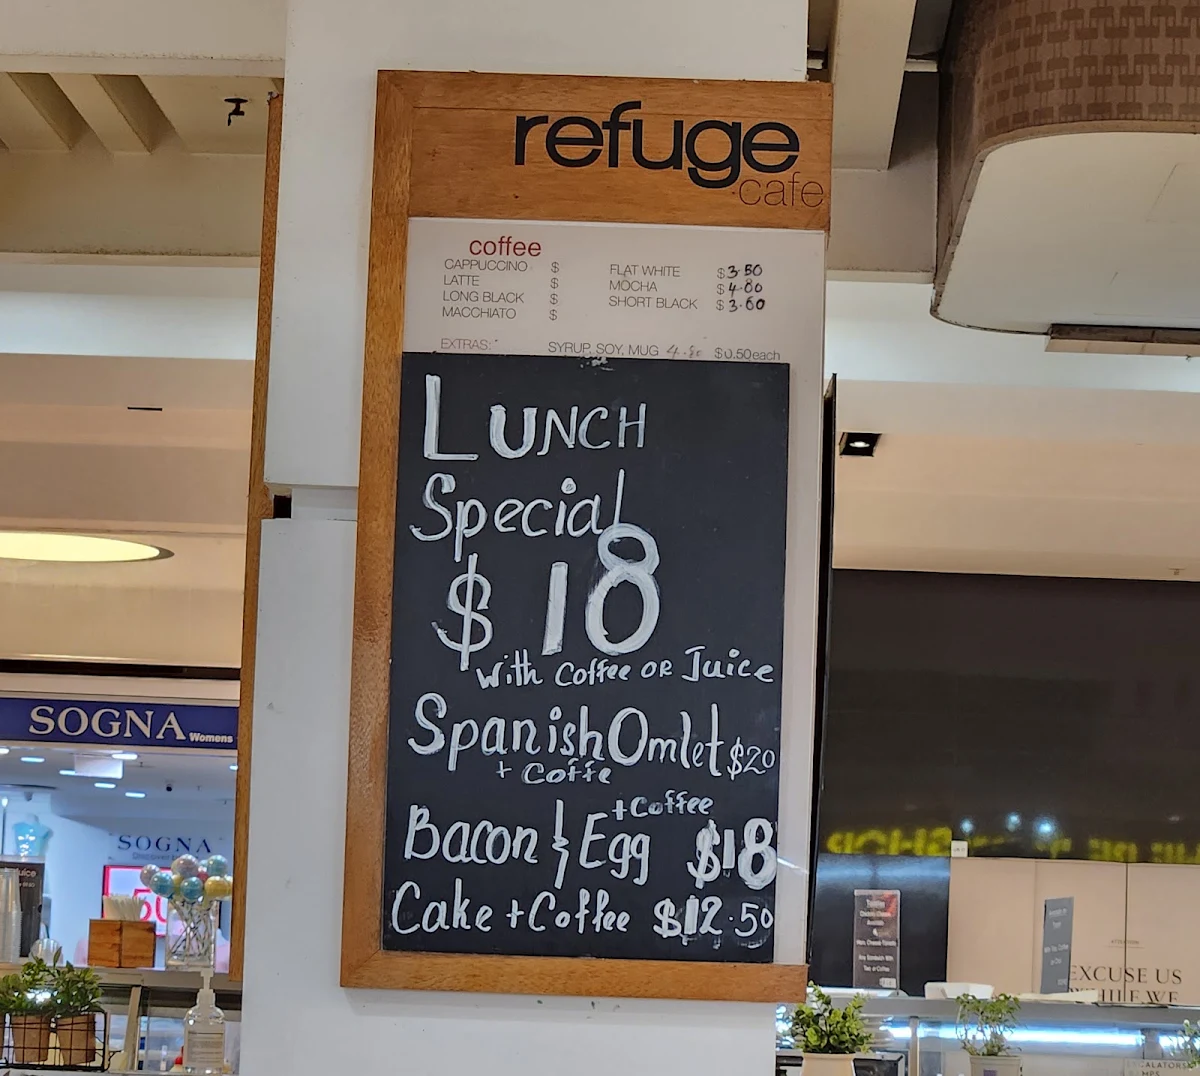 refuge
cafe
coffee
CAPPUCCINO $ FLAT WHITE $3.50
LATTE $ MOCHA $4.80
LONG BLACK $ SHORT BLACK $3.60
MACCHIATO $
EXTRAS: SYRUP, SOY, MUG 4.80 $0.50each
LUNCH
Special
$18
With Coffee OR Juice
Spanish Omlet $20
+ Coffe
+Coffee
Bacon & Egg $18
Cake + Coffee $12.50
SOGNA Womens
SOGNA
EXCUSE US
WHILE WE